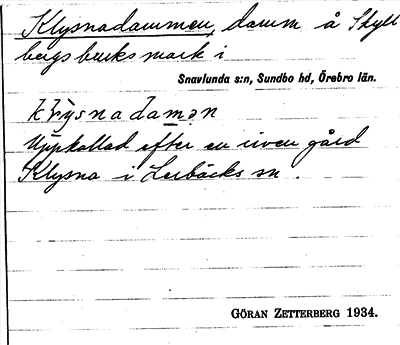 Klysnadammen, damm å Skyll
bergs bruks mark i
Snavlunda s:n, Sundbo hd, Örebro län.
klỳsnadamən
Uppkallad efter en riven gård
Klysna i Lerbäcks sn.
GÖRAN ZETTERBERG 1934.